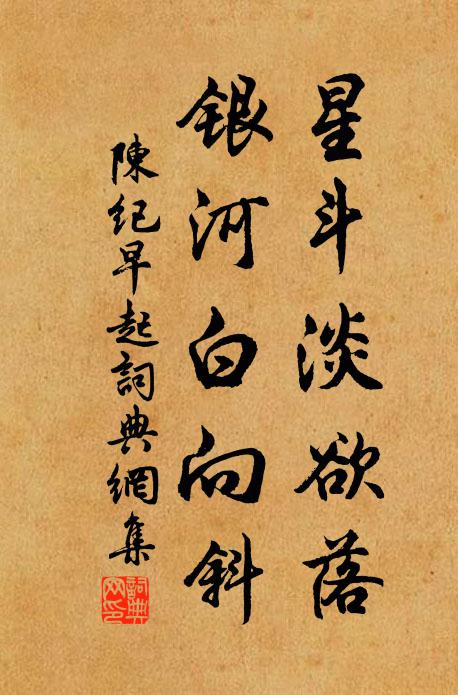 星斗淡欲落
銀河白向斜
陳紀早起詞典網集
詞典网印